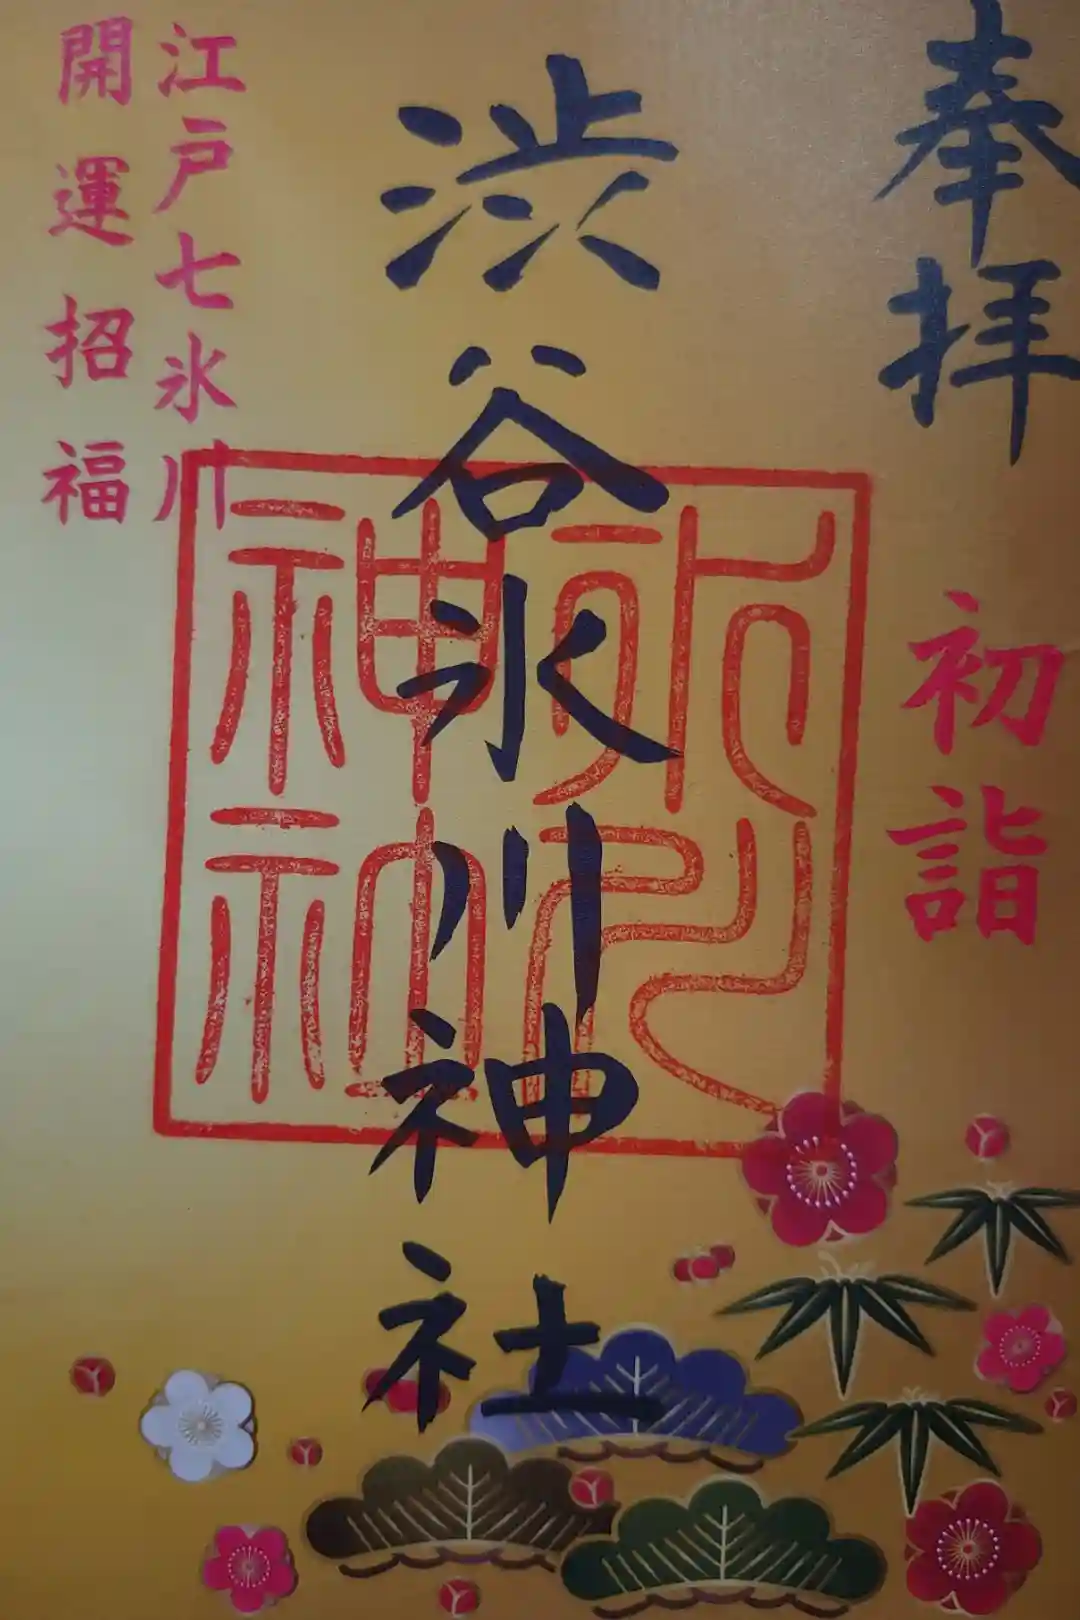 奉拝
初詣
渋谷氷川神社
氷川神社
江戸七氷川
開運招福